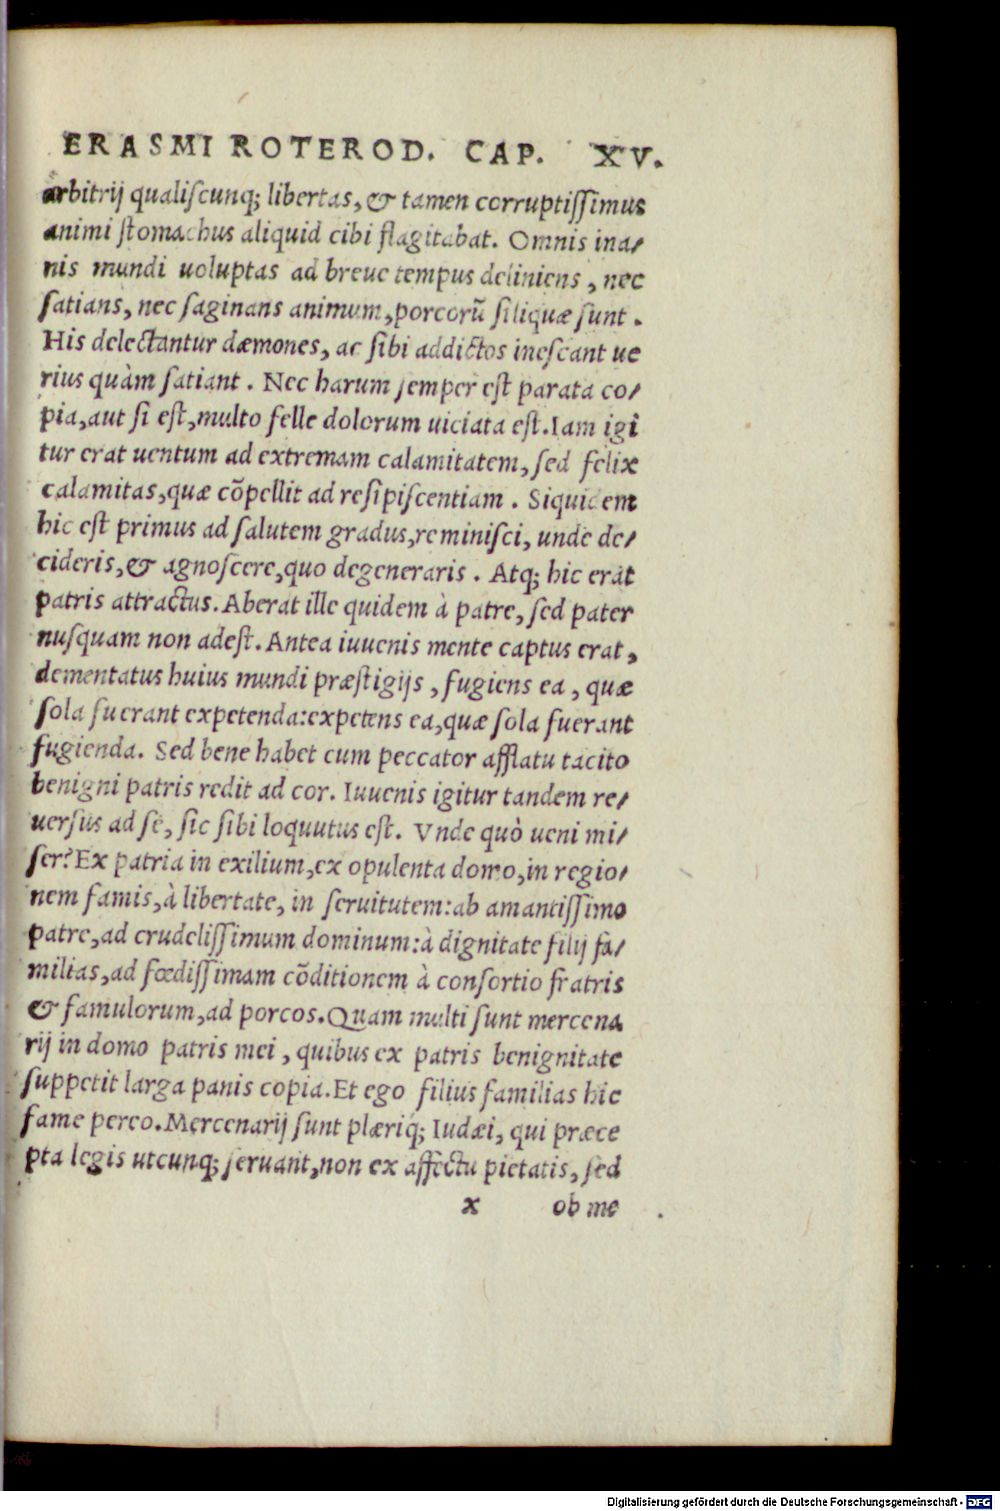 ERASMI ROTEROD. CAP. XV.
arbitrij qualiſcunq; libertas, & tamen corruptiſſimus
animi ſtomachus aliquid cibi flagitabat. Omnis ina⸗
nis mundi uoluptas ad breue tempus deliniens, nec
ſatians, nec ſaginans animum, porcorũ ſiliquæ ſunt.
His delectantur dæmones, ac ſibi addictos ineſcant ue
rius quàm ſatiant. Nec harum ſemper eſt parata co⸗
pia, aut ſi eſt, multo felle dolorum uiciata eſt. Iam igi
tur erat uentum ad extremam calamitatem, ſed felix
calamitas, quæ cõpellit ad reſipiſcentiam. Siquidem
hic eſt primus ad ſalutem gradus, reminiſci, unde de⸗
cideris, & agnoſcere, quo degeneraris. Atq; hic erat
patris attractus. Aberat ille quidem à patre, ſed pater
nuſquam non adeſt. Antea iuuenis mente captus erat,
dementatus huius mundi præſtigijs, fugiens ea, quæ
ſola fuerant expetenda: expetens ea, quæ ſola fuerant
fugienda. Sed bene habet cum peccator afflatu tacito
benigni patris redit ad cor. Iuuenis igitur tandem re⸗
uerſus ad ſe, ſic ſibi loquutus eſt. Vnde quò ueni mi⸗
ſer? Ex patria in exilium, ex opulenta domo, in regio⸗
nem famis, à libertate, in ſeruitutem: ab amantiſſimo
patre, ad crudeliſſimum dominum: à dignitate filij fa⸗
milias, ad fœdiſſimam cõditionem à conſortio fratris
& famulorum, ad porcos. Quam multi ſunt mercena
rij in domo patris mei, quibus ex patris benignitate
ſuppetit larga panis copia. Et ego filius familias hic
fame pereo. Mercenarij ſunt plæriq; Iudæi, qui præce
pta legis utcunq; ſeruant, non ex affectu pietatis, ſed
x ob me
Digitalisierung gefördert durch die Deutsche Forschungsgemeinschaft - DFG